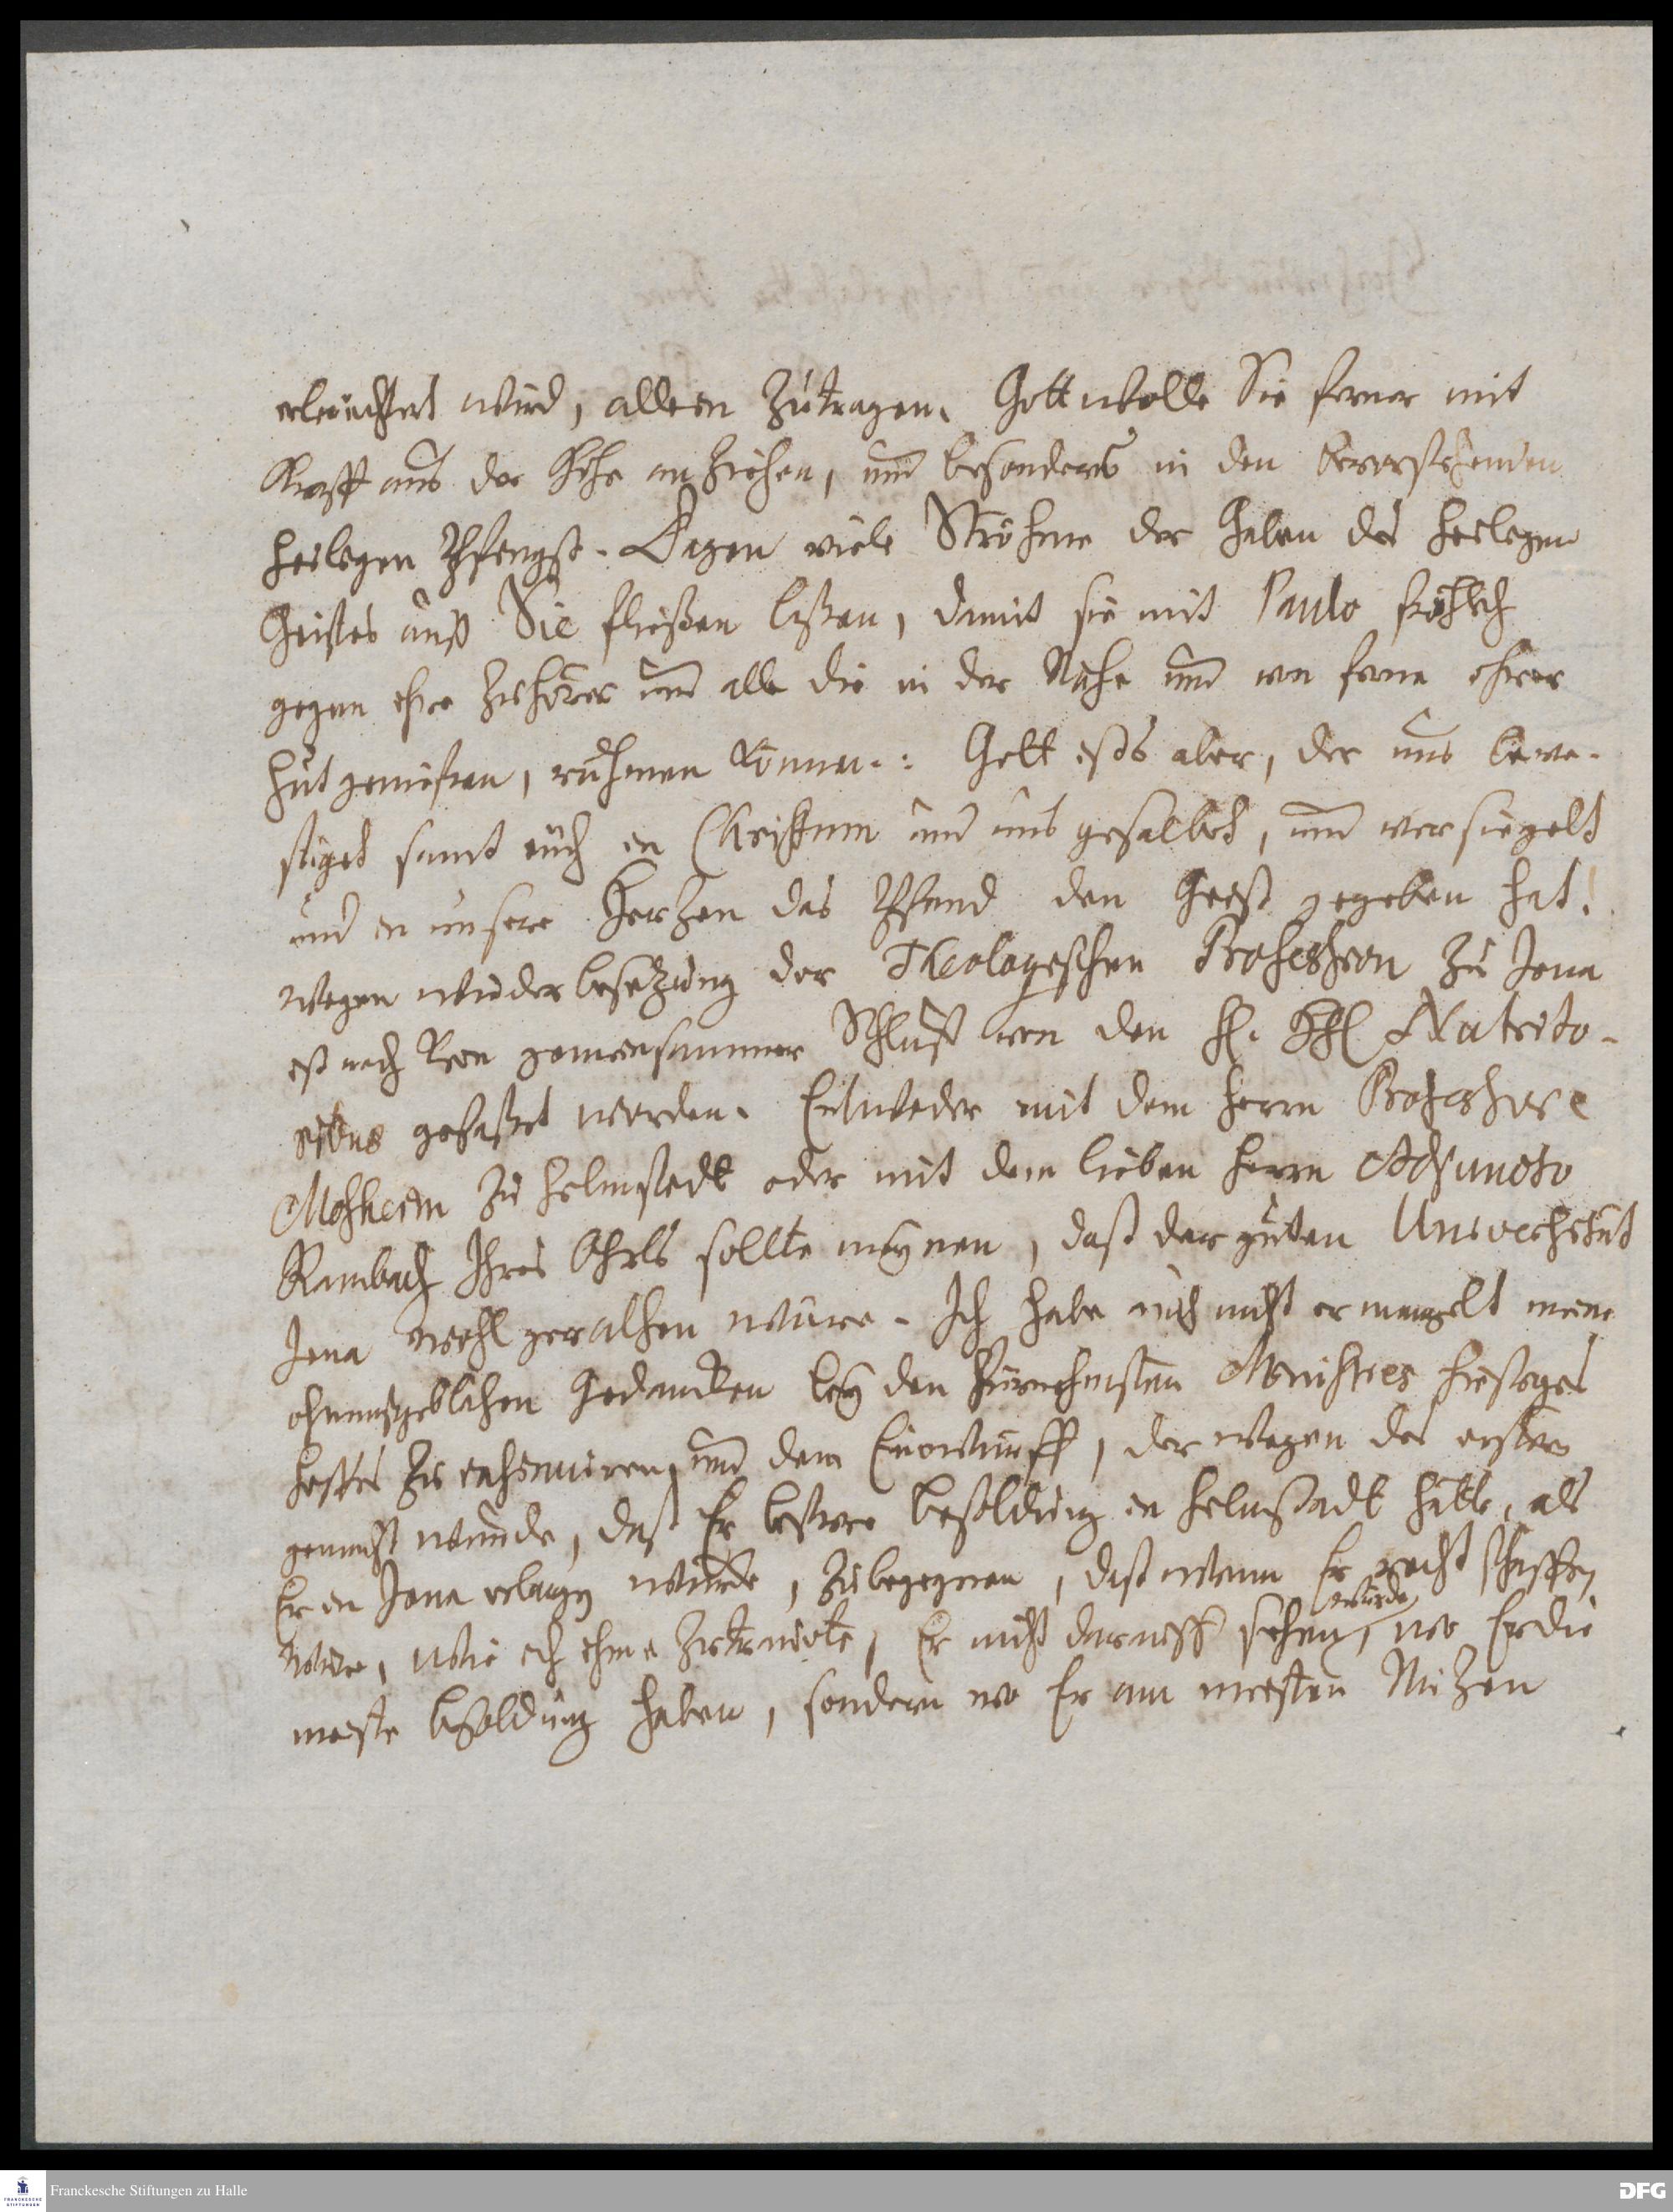 erleuchtert wird, alleen zutragen. Gott wolle Sie ferner mit
Krafft aus der Höhe anziehen, und besonders in den bevorstehenden
heiligen Pfengst-Tagen viele Ströhme der Gaben des heiligen
Geistes auß Sie fließen laßen, damit sie mit Paulo frölich
gegen ihre Zuhörer und alle die in der Nähe und von ferne ihrer
hut genießen, rühmen können: Gott ists aber, der uns beve-
stiget samt euch in Christum und uns gesalbet, und versiegelt
und in unsere Herzen das Pfand den Geist gegeben hat!
Wegen wiederbesetzung der Theologischen Profession zu Jena
ist noch kein gemeinsammer Schluß von den H. HH. Nutrito-
ribus gefaßet worden. Entweder mit dem Herrn Professore
Mosheim zu Helmstedt oder mit dem lieben Herrn Adjuncto
Rambach Ihres Ohrts sollte meynen, daß der guten Universität
Jena wohl gerathen wäre. Ich habe auch nicht ermangelt meine
ohnmaßgeblichen Gedancken bey den Fürnehmsten Ministres hiesiges
Hoffes zu insinuiren, und dem Einwurff, der wegen des ersten
gemacht wurde, daß Er beßere besoldung in Helmstadt hätte, als
Er in Jena erlangen würde, zubegegnen, daß wenn Er rechtschaffen
wäre, wie ich ihme zutrauete, Er nicht darauff sehen würde, wo Er die
meiste besoldung haben, sondern wo Er am meisten Nuzen
Franckesche Stiftungen zu Halle
DFG